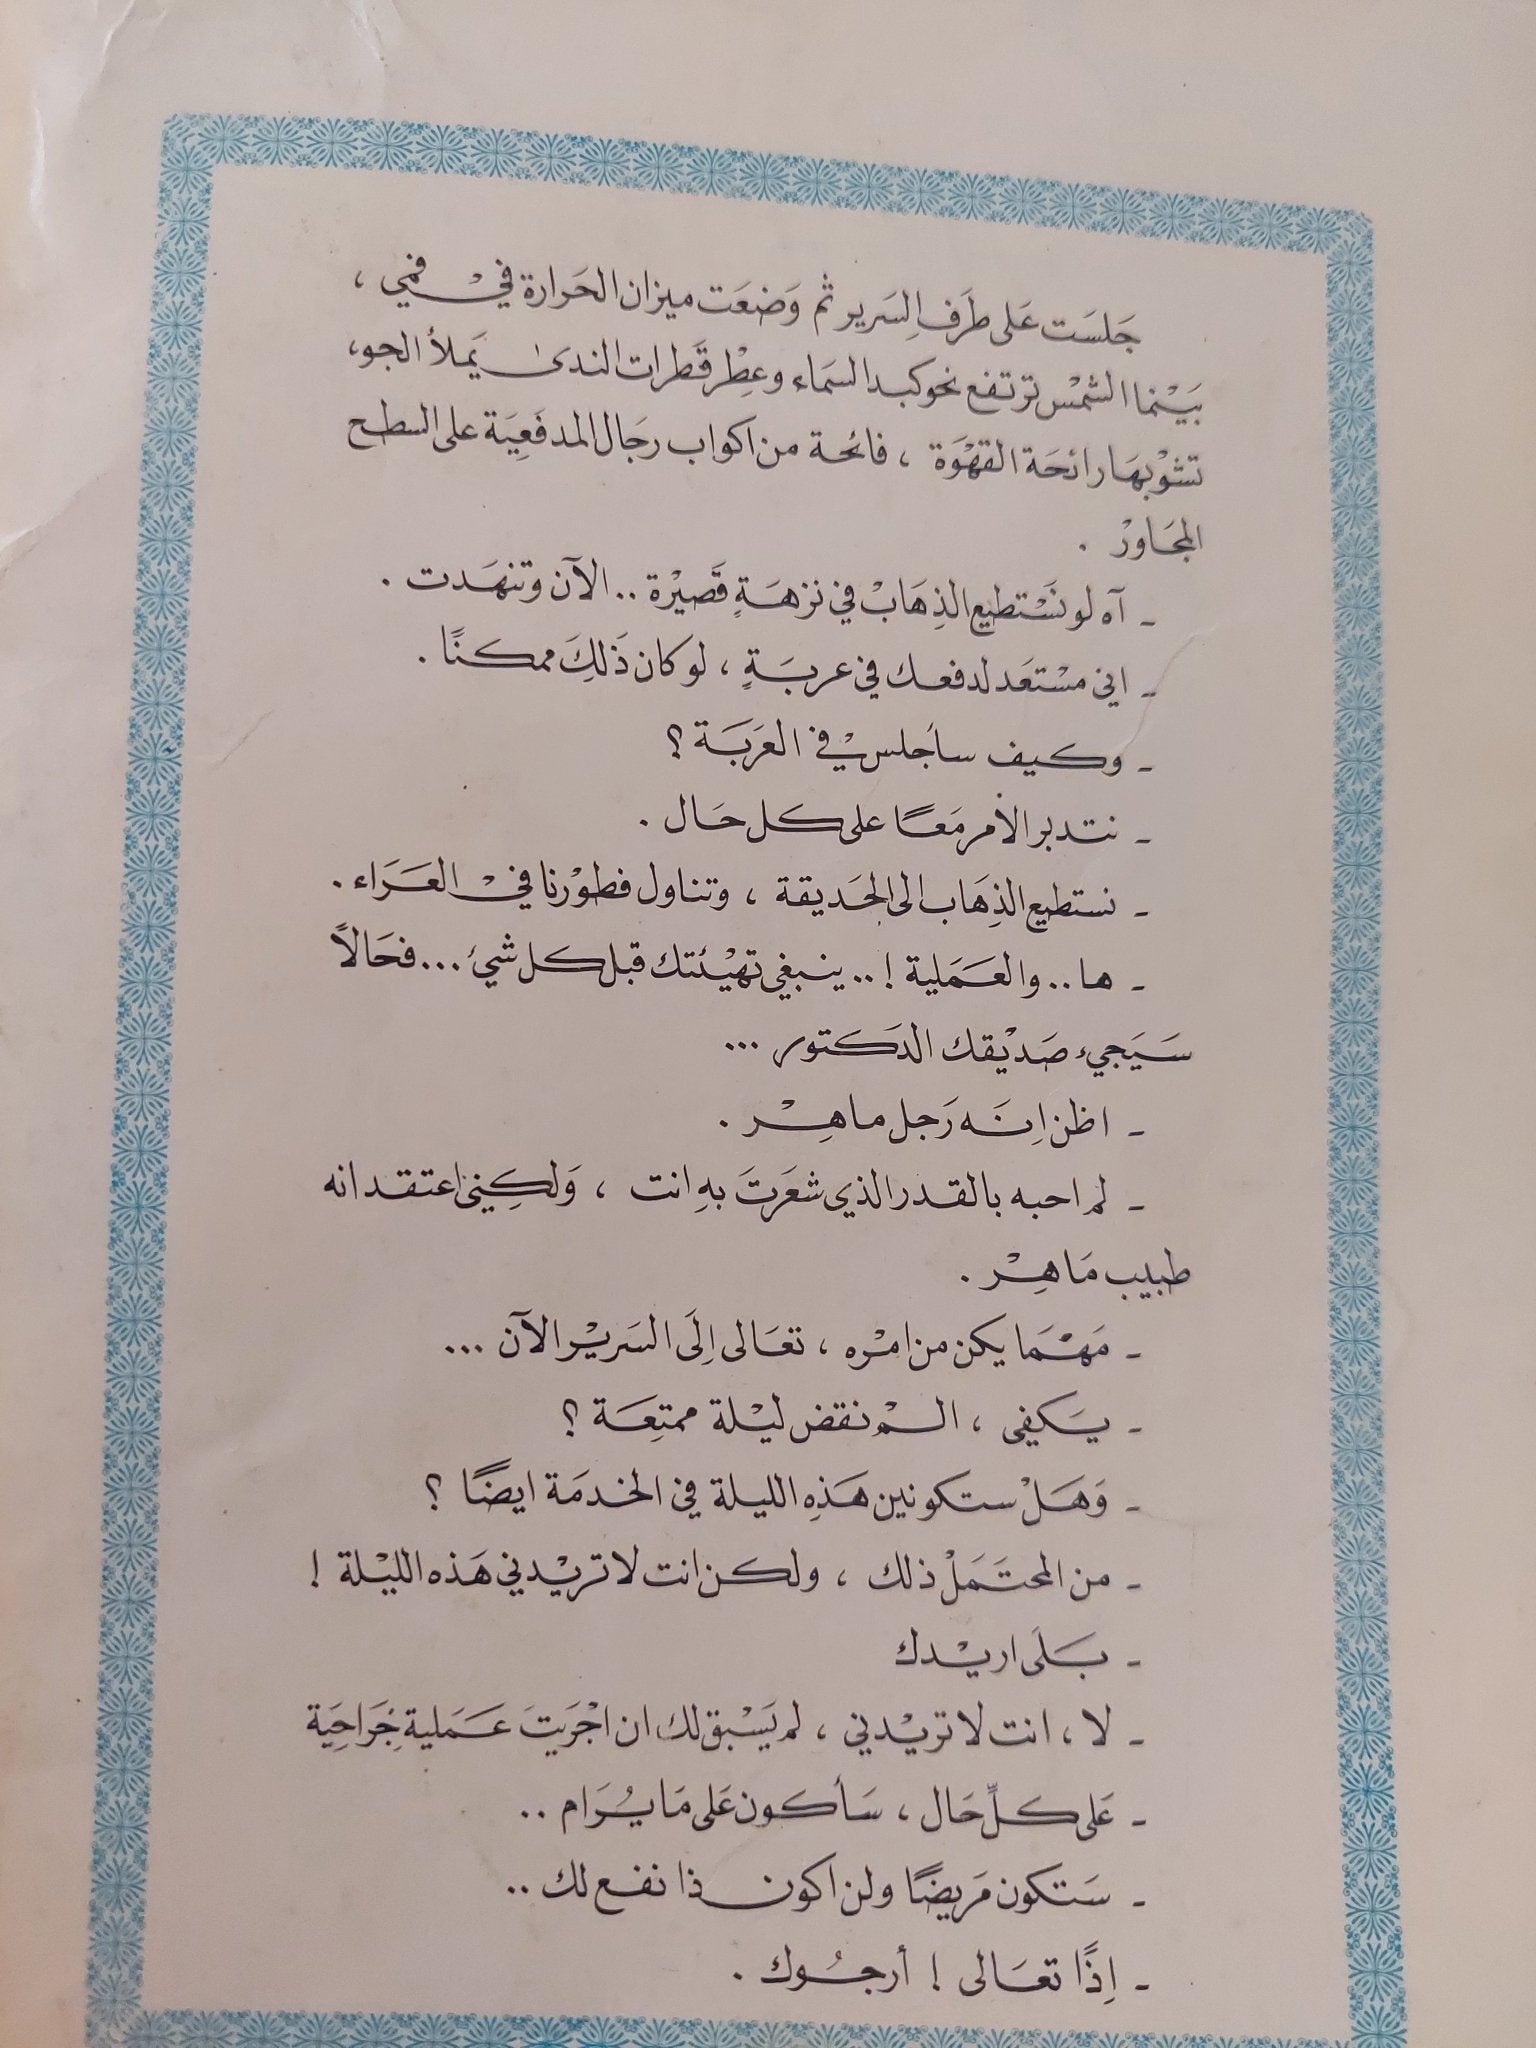 جَلسَت عَلى طرَفِ السَرير ثم وَضعَت ميزان الحَرارة فيْ فمي ،
بَيْنما الشمْس ترتفع نحو كبد السَماء وعِطْر قَطرات الندىٰ يَملأ الجو،
تشوْبهَا رائحَة القهْوَة ، فائحة من اكواب رجَال المدفَعِيَة على السطح
المجَاورْ .
ـ آه لو نسَْتطيع الذِهَابْ في نزهَةٍ قَصيْرة .. الآن وتنهَدت .
ـ اني مسْتعَد لدفعك في عربَةٍ ، لو كان ذَلكَِ ممكنًا .
ـ وكيف سأجلسْ في العَرَبَة ؟
ـ نتدبر الأمر مَعًا على كل حَال .
ـ نستطيع الذِهَاب الى الحَديقة ، وتناول فطوْرنا فيْ العَرَاء .
ـ ها .. والعَمَلية ! .. ينبغي تهيْئتك قبل كل شيء ... فحَالاً
سَيَجيء صَديْقك الدَكتور ...
ـ اظن اِنَه رَجل ماهِرْ .
ـ لم احبه بالقدر الذي شعَرتَ بهِ انت ، وَلكِنيْ اعتقد انه
طبيب مَاهِرْ .
ـ مَهْمَا يكن من امْره ، تعَالى اِلَى السَريْر الآن ...
ـ يَكفِى ، المْ نقض ليْلة ممتِعَة ؟
ـ وَهَلْ ستكونين هَذِه الليلة في الخدمَة ايضًا ؟
ـ من المحتَمَلْ ذلك ، ولكن انت لا تريْدني هَذه الليْلة !
ـ بَلَى اريْدك
ـ لا ، انت لا تريْدني ، لم يَسْبق لك ان اجْرَيتَ عَملية جَِرَاحِيَة
ـ عَلى كلِّ حَال ، سَأكون عَلى مَا يُرَام ..
ـ سَتكون مَريضًا ولن اكون ذا نفع لك ..
ـ اِذًا تعَالى ! أرجُوك .